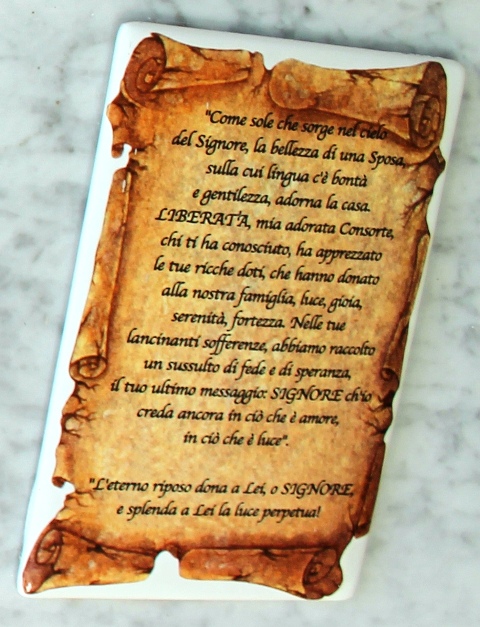 "Come sole che sorge nel cielo
del Signore, la bellezza di una Sposa,
sulla cui lingua c'è bontà
e gentilezza, adorna la casa.
LIBERATA, mia adorata Consorte,
chi ti ha conosciuto, ha apprezzato
le tue ricche doti, che hanno donato
alla nostra famiglia, luce, gioia,
serenità, fortezza. Nelle tue
lancinanti sofferenze, abbiamo raccolto
un sussulto di fede e di speranza,
il tuo ultimo messaggio: SIGNORE ch'io
creda ancora in ciò che è amore,
in ciò che è luce".
"L'eterno riposo dona a Lei, o SIGNORE,
e splenda a Lei la luce perpetua!